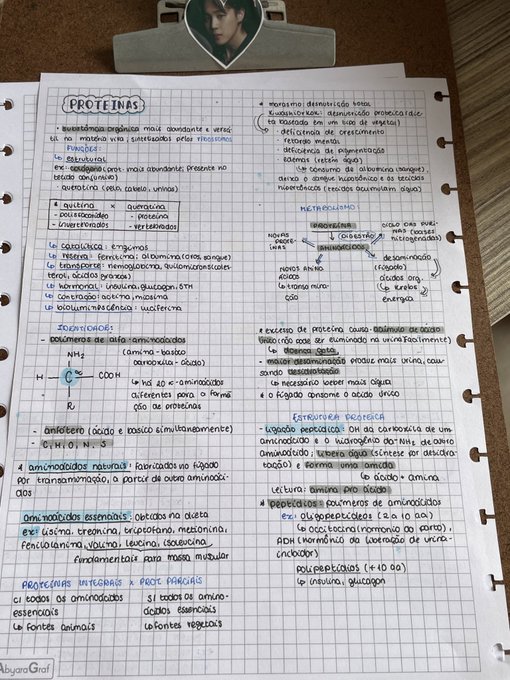 PROTEÍNAS
• substância orgânica mais abundante e versá-
til na matéria viva, sintetizados pelos ribossomos
FUNÇÕES:
↳ estrutural
ex: colágeno (prot. mais abundante, presente no
tecido conjuntivo)
- queratina (pelo, cabelo, unhas)
* quitina x queratina
- polissacarídeo - proteína
- invertebrados - vertebrados
↳ catalítica: enzimas
↳ reserva: ferritina; albumina (ovos, sangue)
↳ transporte: hemoglobina, quilomicrons (coles-
terol, ácidos graxos)
↳ hormonal: insulina, glucagon, STH
↳ contração: actina, miosina
↳ bioluminescência: luciferina
IDENTIDADE:
- polímeros de alfa-aminoácidos
NH₂ (amina-básico
carboxila-ácido)
H C COOH
α
↳ há 20 α-aminoácidos
R diferentes para a forma
ção de proteínas
- anfótero (ácido e básico simultaneamente)
- C, H, O, N, S
* aminoácidos naturais: fabricados no fígado
por transaminação, a partir de outro aminoáci-
dos
aminoácidos essenciais: obtidos na dieta
ex: lisina, treonina, triptofano, metionina,
fenilalanina, valina, leucina, isoleucina
fundamentais para massa muscular
PROTEÍNAS INTEGRAIS x PROT PARCIAIS
c/ todos os aminoácidos s/ todos os amino-
essenciais ácidos essenciais
↳ fontes animais ↳ fontes vegetais
* marasmo: desnutrição total
Kwashiorkor: desnutrição proteica (die
ta baseada em um tipo de vegetal)
- deficiência de crescimento
- retardo mental
- deficiência de pigmentação
edemas (retém água)
↳ consumo de albumina (sangue),
deixa o sangue hipotônico e os tecidos
hipertônicos (tecidos acumulam água)
METABOLISMO:
PROTEÍNA CICLO DAS PURI-
NOVAS (DIGESTÃO) NAS (bases
PROTE- nitrogenadas)
ÍNAS AMINOÁCIDOS
NOVOS AMINO desaminação
ÁCIDOS (fígado)
↳ transamina- ácidos org.
ção ↳ Krebs
energia
* excesso de proteína causa acúmulo de ácido
úrico (não pode ser eliminado na urina facilmente)
↳ doença gota
- maior desaminação produz mais urina, cau-
sando desidratação
↳ necessário beber mais água
* o fígado consome o ácido úrico
ESTRUTURA PROTEICA
- ligação peptídica: OH da carboxila de um
aminoácido e o hidrogênio da -NH₂ de outro
aminoácido, libera água (síntese por desidra-
tação) e forma uma amida
↳ ácido + amina
Leitura: amina pro ácido
* peptídios: polímeros de aminoácidos
ex: oligopeptídeos (2 a 10 aa)
↳ occitocina (hormônio do parto),
ADH (hormônio da liberação de urina-
inibidor)
polipeptídios (+10 aa)
↳ insulina, glucagon
AbyaraGraf